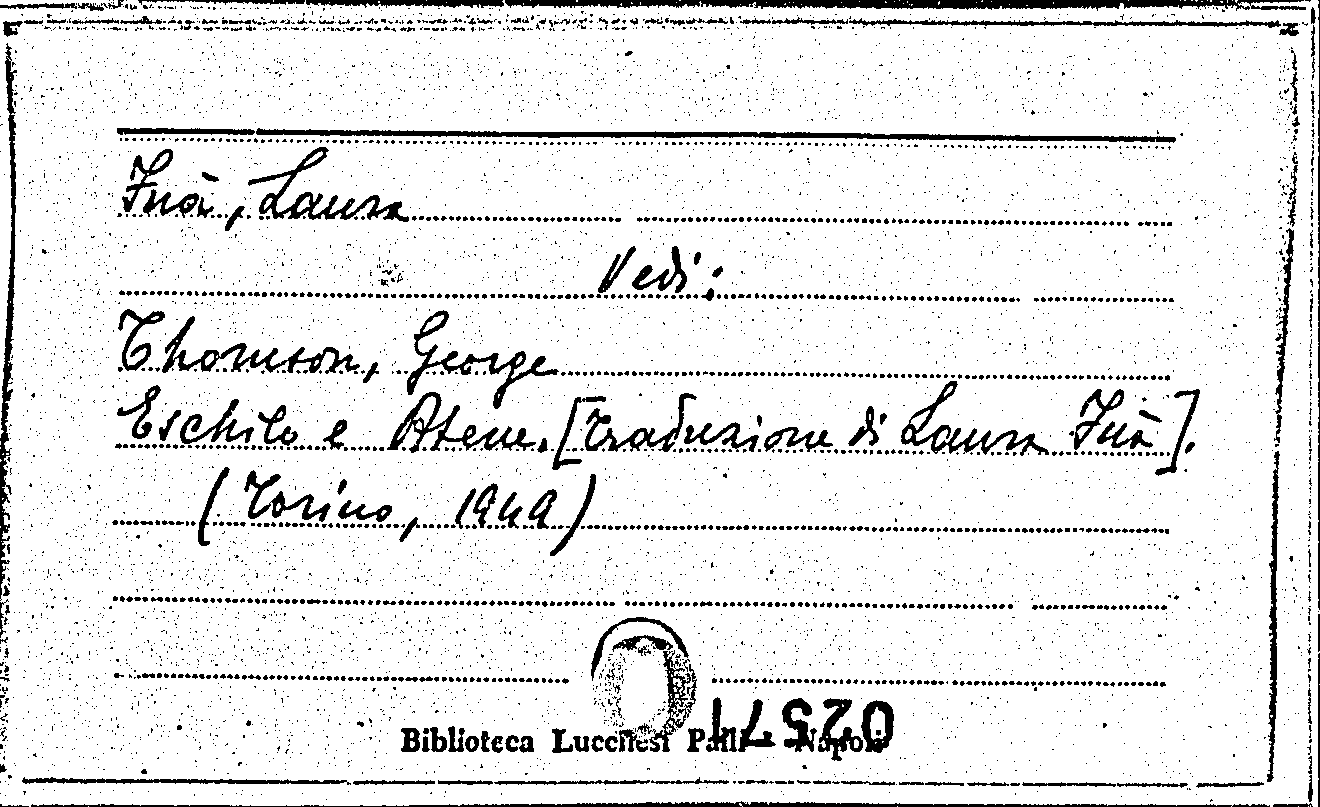 Fuà, Laura
Vedi:
Thomson, George
Eschilo e Atene. [Traduzione di Laura Fuà].
(Torino, 1949)
02571
Biblioteca Lucchesi Palli - Napoli